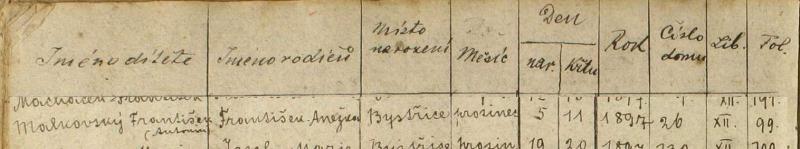 Jméno dítěte Jméno rodičů Místo narození Měsíc Den nar. křtu Rok Číslo domu Lib. Fol.
XII. 197.
Malkovský František (Antonín) František Anežka Bystřice prosinec 5 11 1897 26 XII. 99.
Josef Marie Bystřice prosin 19 20